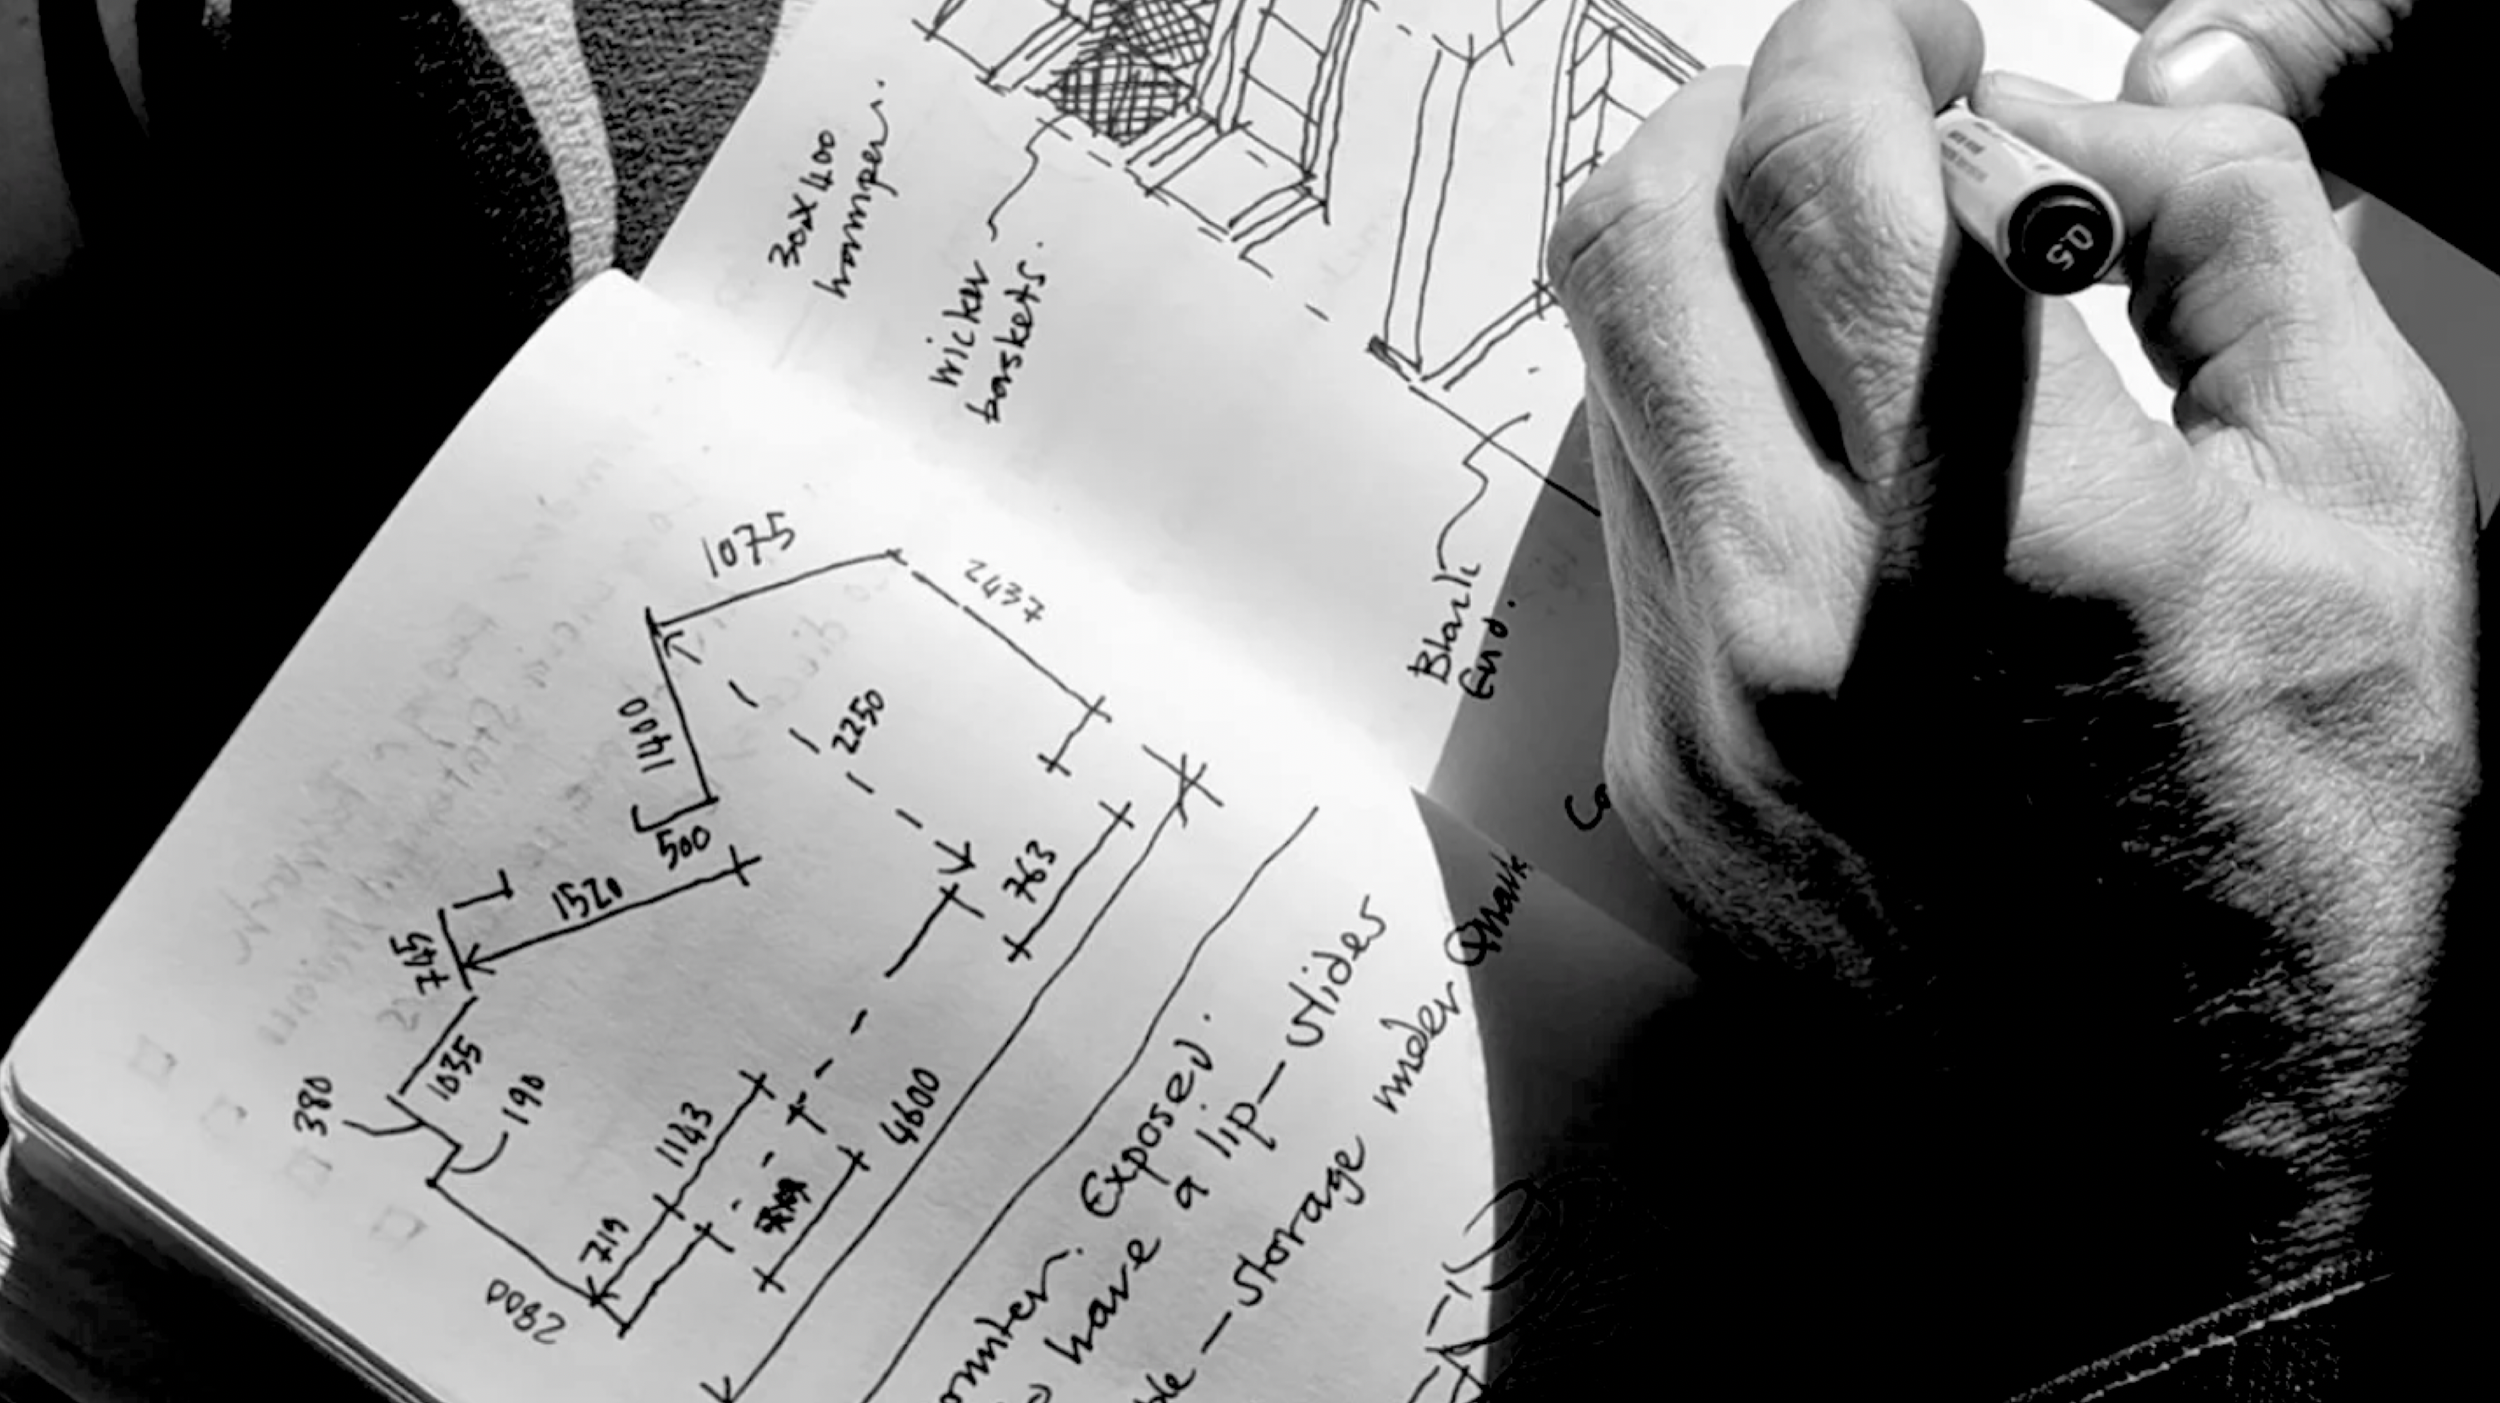 30x400
hamper.
wicker
baskets.
Blank
End.
05
1075
2437
1400
2250
500
763
1520
745
1035
380
190
1143
4600
719
2800
Exposed.
have a lip — slides
— storage under